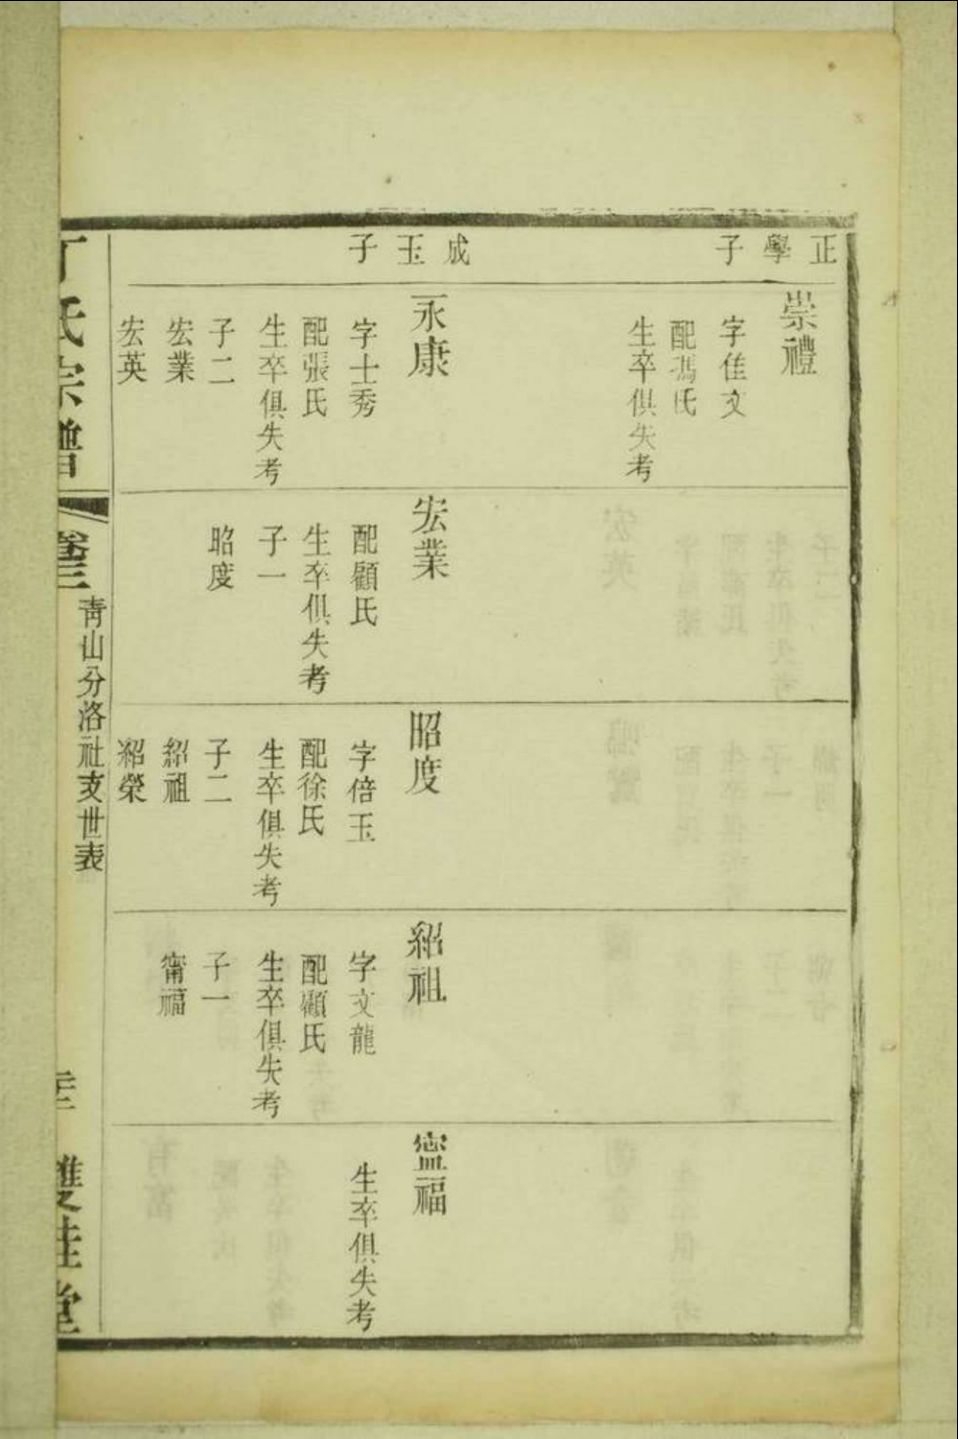 正學子
崇禮
字佳文
配馮氏
生卒俱失考
成玉子
永康
字士秀
配張氏
生卒俱失考
子二
宏業
宏英
宏業
配顧氏
生卒俱失考
子一
昭度
昭度
字倍玉
配徐氏
生卒俱失考
子二
紹祖
紹榮
紹祖
字文龍
配顧氏
生卒俱失考
子一
甯福
寍福
生卒俱失考
丁氏宗譜
卷三
青山分洛社支世表
雙桂堂